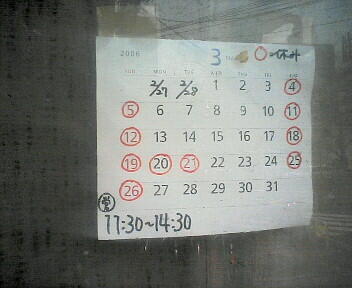 2006 3 ○→休み
SUN MON TUE WED THU FRI SAT
2/27 2/28 1 2 3 4
5 6 7 8 9 10 11
12 13 14 15 16 17 18
19 20 21 22 23 24 25
26 27 28 29 30 31
11:30~14:30